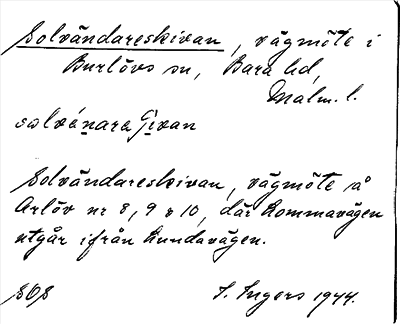 Solvändareskivan, vägmöte i
Burlövs sn, Bara hd,
Malm. l.
sølvę́nara Şivan
Solvändareskivan, vägmöte på
Arlöv nr 8, 9 o 10, där Lommavägen
utgår ifrån Lundavägen.
I. Ingers 1944.